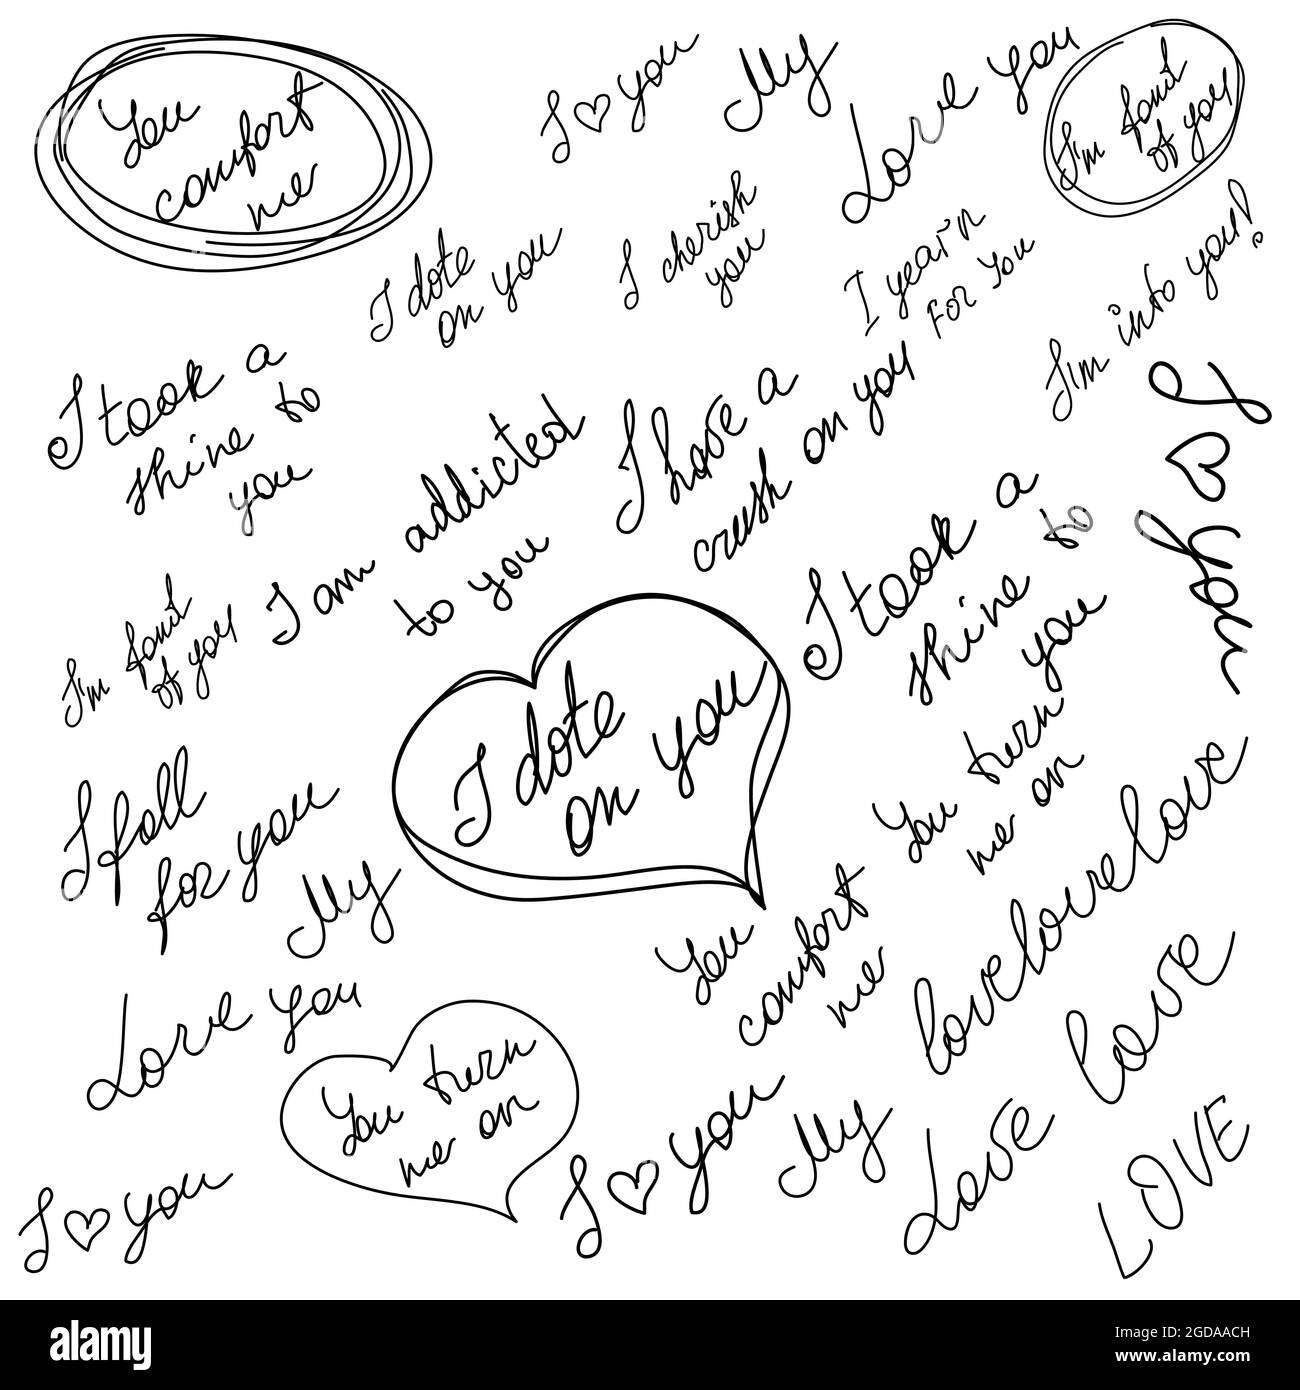 You
comfort
me
I ♡ you
My
Love you
I'm fond
of you
I dote
on you
I cherish
you
I yearn
For You
I'm into you!
I took a
shine to
you
I am addicted
to you
I have a
crush on you
I ♡ you
I took a
shine to
you
I'm fond
of you
I dote
on you
I fall
for you
My
You turn
me on
lovelovelove
You
comfort
me
Love you
You turn
me on
love
I ♡ you
I ♡ you
My
Love
LOVE
alamy
Image ID: 2GDAACH
www.alamy.com